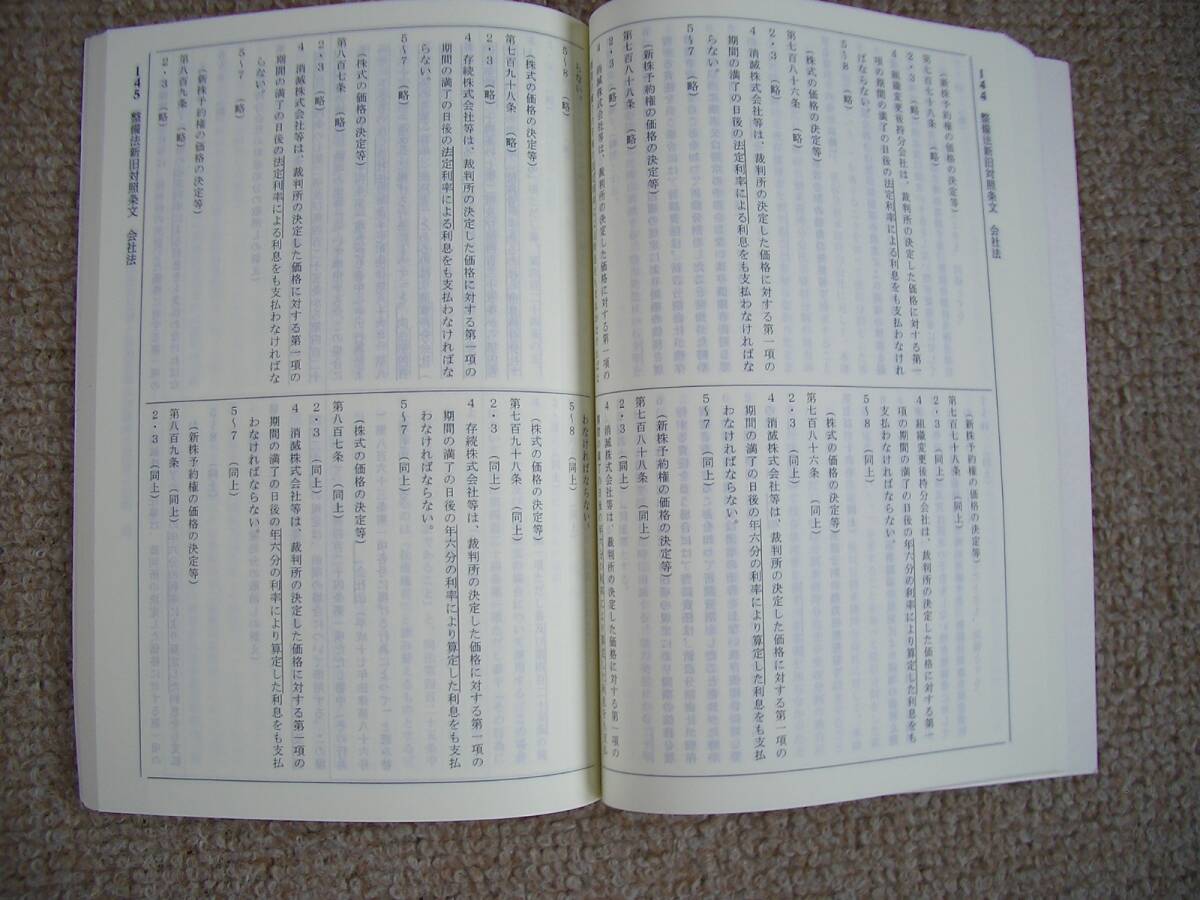 144　整備法新旧対照条文　会社法
（新株予約権の価格の決定等）
第七百七十八条　（略）
2・3　（略）
4　組織変更後持分会社は、裁判所の決定した価格に対する第一
項の期間の満了の日後の法定利率による利息をも支払わなけれ
ばならない。
5～8　（略）
（株式の価格の決定等）
第七百八十六条　（略）
2・3　（略）
4　消滅株式会社等は、裁判所の決定した価格に対する第一項の
期間の満了の日後の法定利率による利息をも支払わなければな
らない。
5～7　（略）
（新株予約権の価格の決定等）
第七百八十八条　（略）
2・3　（略）
4　消滅株式会社等は、裁判所の決定した価格に対する第一項の
（新株予約権の価格の決定等）
第七百七十八条　（同上）
2・3　（同上）
4　組織変更後持分会社は、裁判所の決定した価格に対する第一
項の期間の満了の日後の年六分の利率により算定した利息をも
支払わなければならない。
5～8　（同上）
（株式の価格の決定等）
第七百八十六条　（同上）
2・3　（同上）
4　消滅株式会社等は、裁判所の決定した価格に対する第一項の
期間の満了の日後の年六分の利率により算定した利息をも支払
わなければならない。
5～7　（同上）
（新株予約権の価格の決定等）
第七百八十八条　（同上）
2・3　（同上）
4　消滅株式会社等は、裁判所の決定した価格に対する第一項の
期間の満了の日後の
らない。
5～8　（略）
（株式の価格の決定等）
第七百九十八条　（略）
2・3　（略）
4　存続株式会社等は、裁判所の決定した価格に対する第一項の
期間の満了の日後の法定利率による利息をも支払わなければな
らない。
5～7　（略）
（株式の価格の決定等）
第八百七条　（略）
2・3　（略）
4　消滅株式会社等は、裁判所の決定した価格に対する第一項の
期間の満了の日後の法定利率による利息をも支払わなければな
らない。
5～7　（略）
（新株予約権の価格の決定等）
第八百九条　（略）
2・3　（略）
わなければならない。
5～8　（同上）
（株式の価格の決定等）
第七百九十八条　（同上）
2・3　（同上）
4　存続株式会社等は、裁判所の決定した価格に対する第一項の
期間の満了の日後の年六分の利率により算定した利息をも支払
わなければならない。
5～7　（同上）
（株式の価格の決定等）
第八百七条　（同上）
2・3　（同上）
4　消滅株式会社等は、裁判所の決定した価格に対する第一項の
期間の満了の日後の年六分の利率により算定した利息をも支払
わなければならない。
5～7　（同上）
（新株予約権の価格の決定等）
第八百九条　（同上）
2・3　（同上）
145　整備法新旧対照条文　会社法